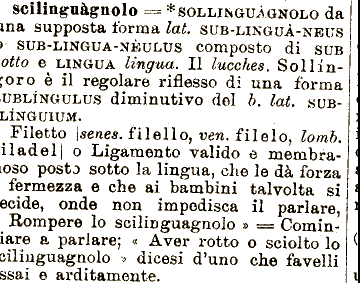 scilinguàgnolo = *SOLLINGUÀGNOLO da
una supposta forma lat. SUB-LINGUÀ-NEUS
o SUB-LINGUA-NÈULUS composto di SUB
otto e LINGUA lingua. Il lucches. Sollín-
goro è il regolare riflesso di una forma
SUBLÍNGULUS diminutivo del b. lat. SUB-
LÍNGUIUM.
Filetto |senes. filello, ven. filelo, lomb.
filadel| o Ligamento valido e membra-
noso posto sotto la lingua, che le dà forza
fermezza e che ai bambini talvolta si
recide, onde non impedisca il parlare,
Rompere lo scilinguagnolo » = Comin-
ciare a parlare; « Aver rotto o sciolto lo
scilinguagnolo » dicesi d'uno che favelli
assai e arditamente.